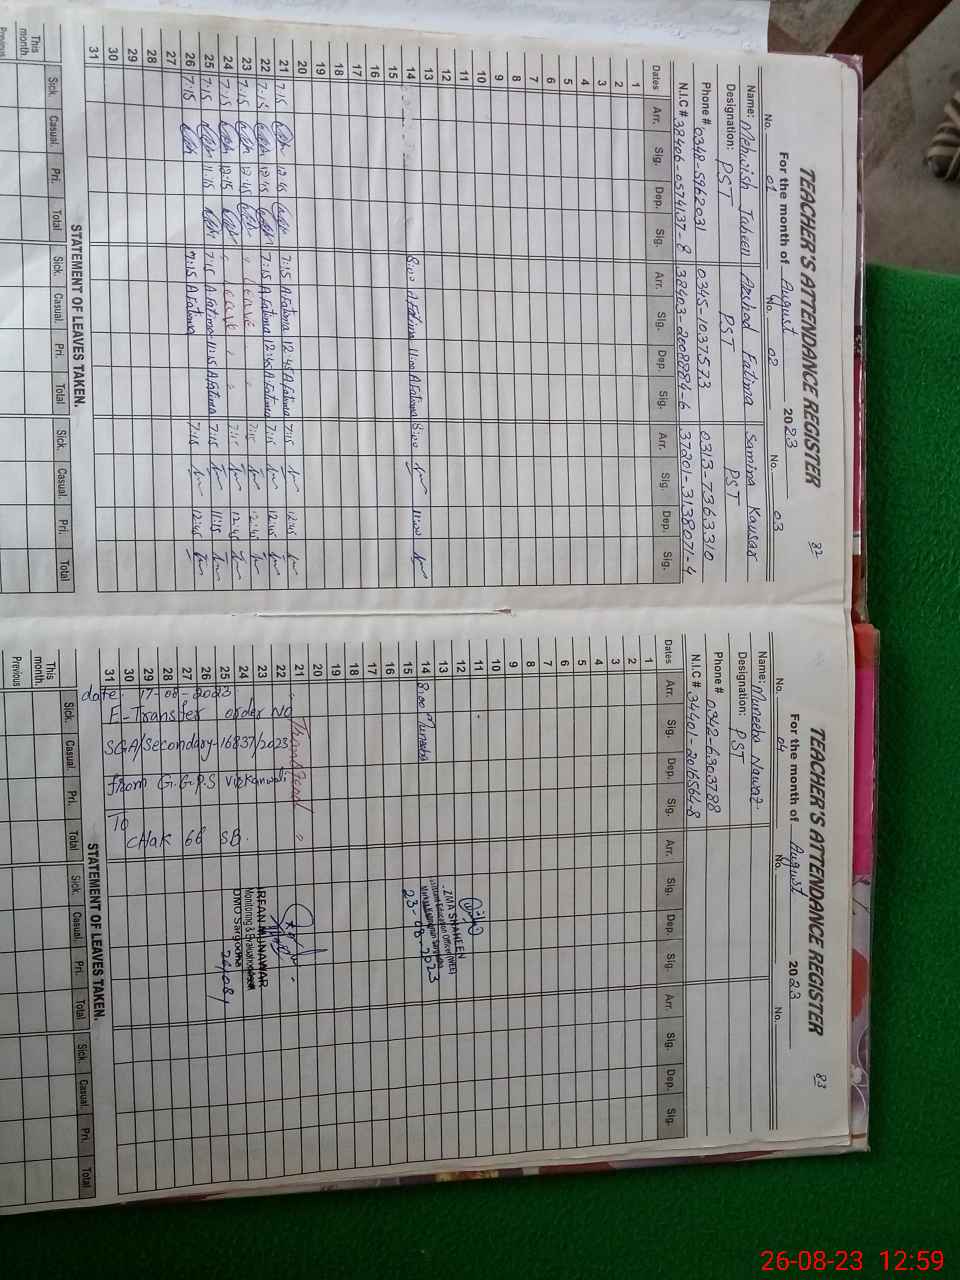 82
TEACHER'S ATTENDANCE REGISTER
For the month of August 2023
No. 01 No. 02 No. 03
Name: Mehwish Jabeen Arshad Fatima Samina Kausar
Designation: PST PST PST
Phone # 0348-5962031 0345-1037573 0313-7363310
N.I.C # 38406-0574137-8 38403-2008884-6 37201-3138071-4
Dates Arr. Sig. Dep. Sig. Arr. Sig. Dep. Sig. Arr. Sig. Dep. Sig.
1
2
3
4
5
6
7
8
9
10
11
12
13
14 8:00 A Fatima 11:00 A Fatima 8:00 11:00
15
16
17
18
19
20
21 7:15 12:45 7:15 A Fatima 12:45 A Fatima 7:15 12:45
22 7:15 12:45 7:15 A Fatima 12:45 A Fatima 7:15 12:45
23 7:15 12:45 Leave 7:15 12:45
24 7:15 12:15 Leave 7:15 12:45
25 7:15 11:15 7:15 A Fatima 11:15 A Fatima 7:15 11:15
26 7:15 7:15 A Fatima 7:15 12:45
27
28
29
30
31
STATEMENT OF LEAVES TAKEN.
Sick. Casual. Pri. Total Sick. Casual. Pri. Total Sick. Casual. Pri. Total
This month
Previous
83
TEACHER'S ATTENDANCE REGISTER
For the month of August 2023
No. 04 No. No.
Name: Muneeba Nawaz.
Designation: PST
Phone # 0342-6303788
N.I.C # 34401-2016564-8
Dates Arr. Sig. Dep. Sig. Arr. Sig. Dep. Sig. Arr. Sig. Dep. Sig.
1
2
3
4
5
6
7
8
9
10
11
12
13
14 8:00 Muneeba
15
16
17
18
19
20
21
22
23
24
25
26
27
28
29
30
31
ZIMA SHAHEEN
23-08-2023
IRFAN MUNAWAR
Monitoring & Evaluation
DMO Sargodha
26/08/
Transfered
date: 17-08-2023
E-Transfer order No
SGA/Secondary-16837/2023
from G.G.P.S
To
CHak 66 SB.
STATEMENT OF LEAVES TAKEN.
Sick. Casual. Pri. Total Sick. Casual. Pri. Total Sick. Casual. Pri. Total
This month.
Previous
26-08-23 12:59